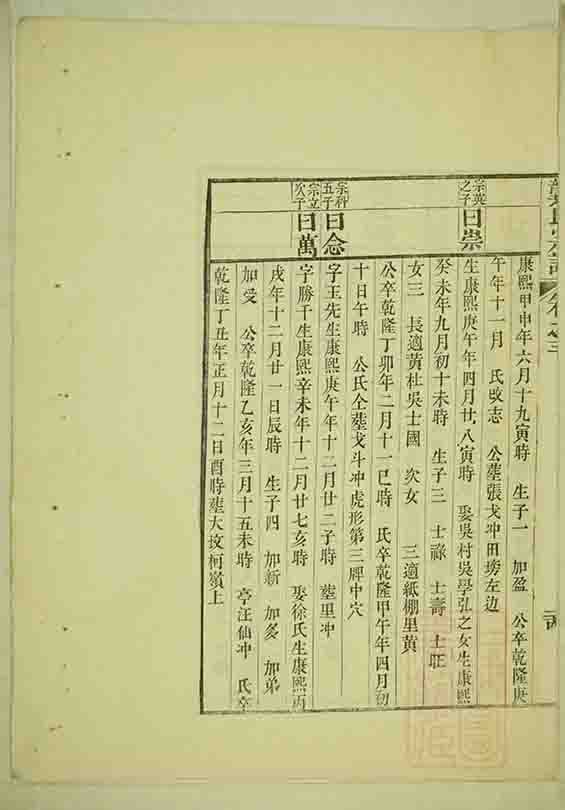 氏宗譜 卷之三
康熙甲申年六月十九寅時 生子一 加盈 公卒乾隆庚
午年十一月 氏改志 公塟張戈冲田塝左边
宗英之子
曰崇
生康熙庚午年四月廿八寅時 娶吳村吳學弘之女生康熙
癸未年九月初十未時 生子三 士祿 士壽 士旺
女三 長適黃杜吳士國 次女 三適紙棚里黃
公卒乾隆丁卯年二月十一巳時 氏卒乾隆甲午年四月初
十日午時 公氏仝塟戈斗冲虎形第三牌中穴
宗科五子
曰念
字玉先生康熙庚午年十二月廿二子時 塟里冲
宗立次子
曰萬
字勝千生康熙辛未年十二月廿七亥時 娶徐氏生康熙丙
戌年十二月廿一日辰時 生子四 加新 加多 加弟
加受 公卒乾隆乙亥年三月十五未時 亭汪仙冲 氏卒
乾隆丁丑年正月十二日酉時塟大坟柯嶺上